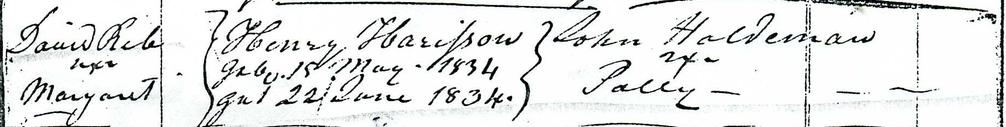 David Reb
uxr
Margaret
Henry Harisson
geb. 15 May 1834
get 22 June 1834.
John Haldeman
uxr
Polly